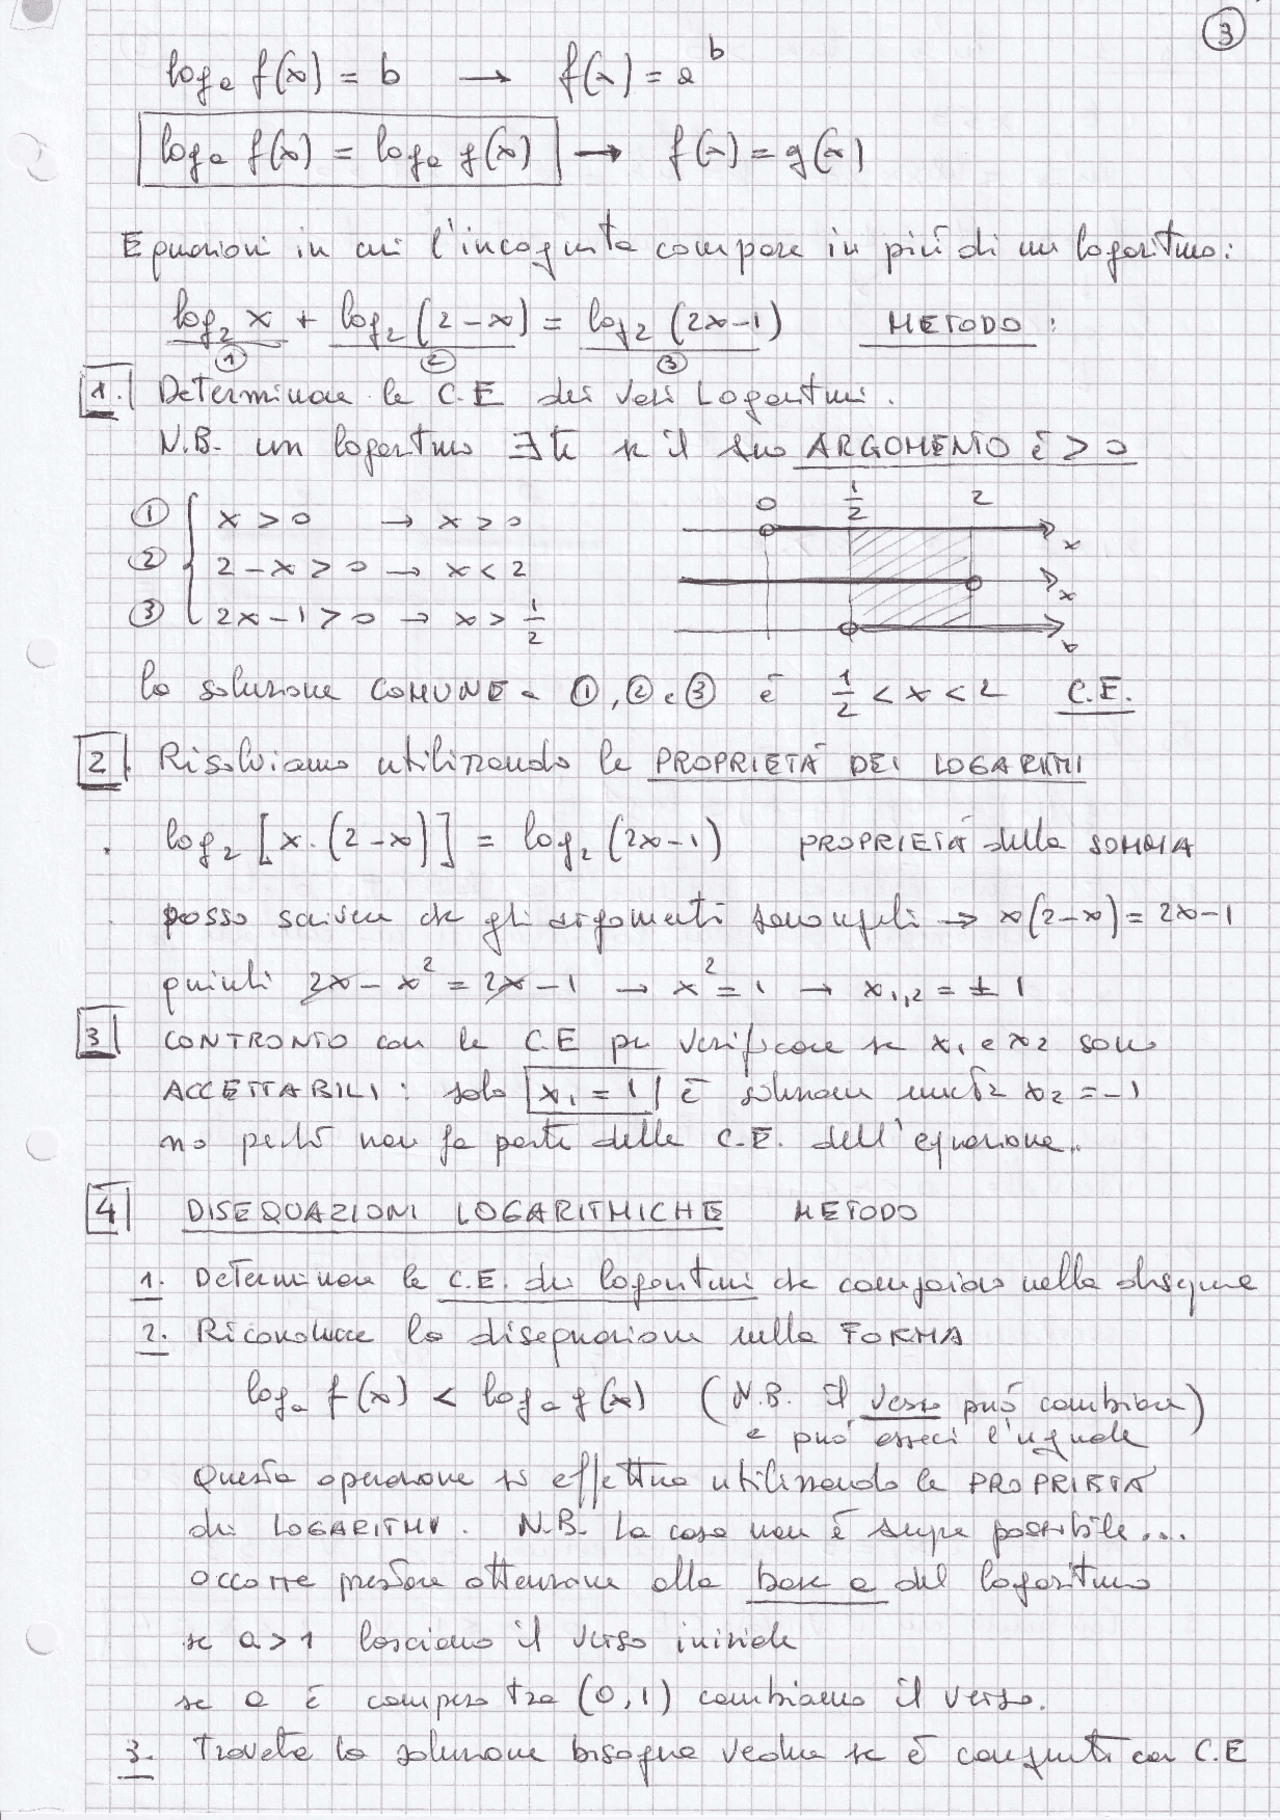 3
log_a f(x) = b → f(x) = a^b
log_a f(x) = log_a g(x) → f(x) = g(x)
Equazioni in cui l'incognita compare in più di un logaritmo:
log_2 x + log_2 (2-x) = log_2 (2x-1) METODO:
① ② ③
1. Determinare le C.E dei vari Logaritmi.
N.B. un logaritmo ∃te se il suo ARGOMENTO è > 0
0 1/2 2
① x > 0 → x > 0 x
② 2 - x > 0 → x < 2 x
③ 2x - 1 > 0 → x > 1/2 x
la soluzione COMUNE a ①, ② e ③ è 1/2 < x < 2 C.E.
2. Risolviamo utilizzando le PROPRIETÀ DEI LOGARITMI
log_2 [x·(2-x)] = log_2 (2x-1) PROPRIETÀ della SOMMA
posso scrivere che gli argomenti sono uguali → x(2-x) = 2x-1
quindi 2x - x² = 2x - 1 → x² = 1 → x_1,2 = ± 1
3 CONTRONTO con le C.E per verificare se x_1 e x_2 sono
ACCETTABILI: solo x_1 = 1 è soluzione mentre x_2 = -1
no perché non fa parte delle C.E. dell'equazione.
4 DISEQUAZIONI LOGARITMICHE METODO
1. Determinare le C.E. dei logaritmi che compaiono nella diseque
2. Ricondurre la disequazione nella FORMA
log_a f(x) < log_a g(x) (N.B. il verso può cambiare)
e può esserci l'uguale
Questa operazione si effettua utilizzando le PROPRIETÀ
dei LOGARITMI. N.B. La cosa non è sempre possibile...
occorre prestare attenzione alla base a del logaritmo
se a > 1 lasciamo il verso iniziale
se a è compreso tra (0,1) cambiamo il verso.
3. Trovata la soluzione bisogna vedere se è congruente con C.E